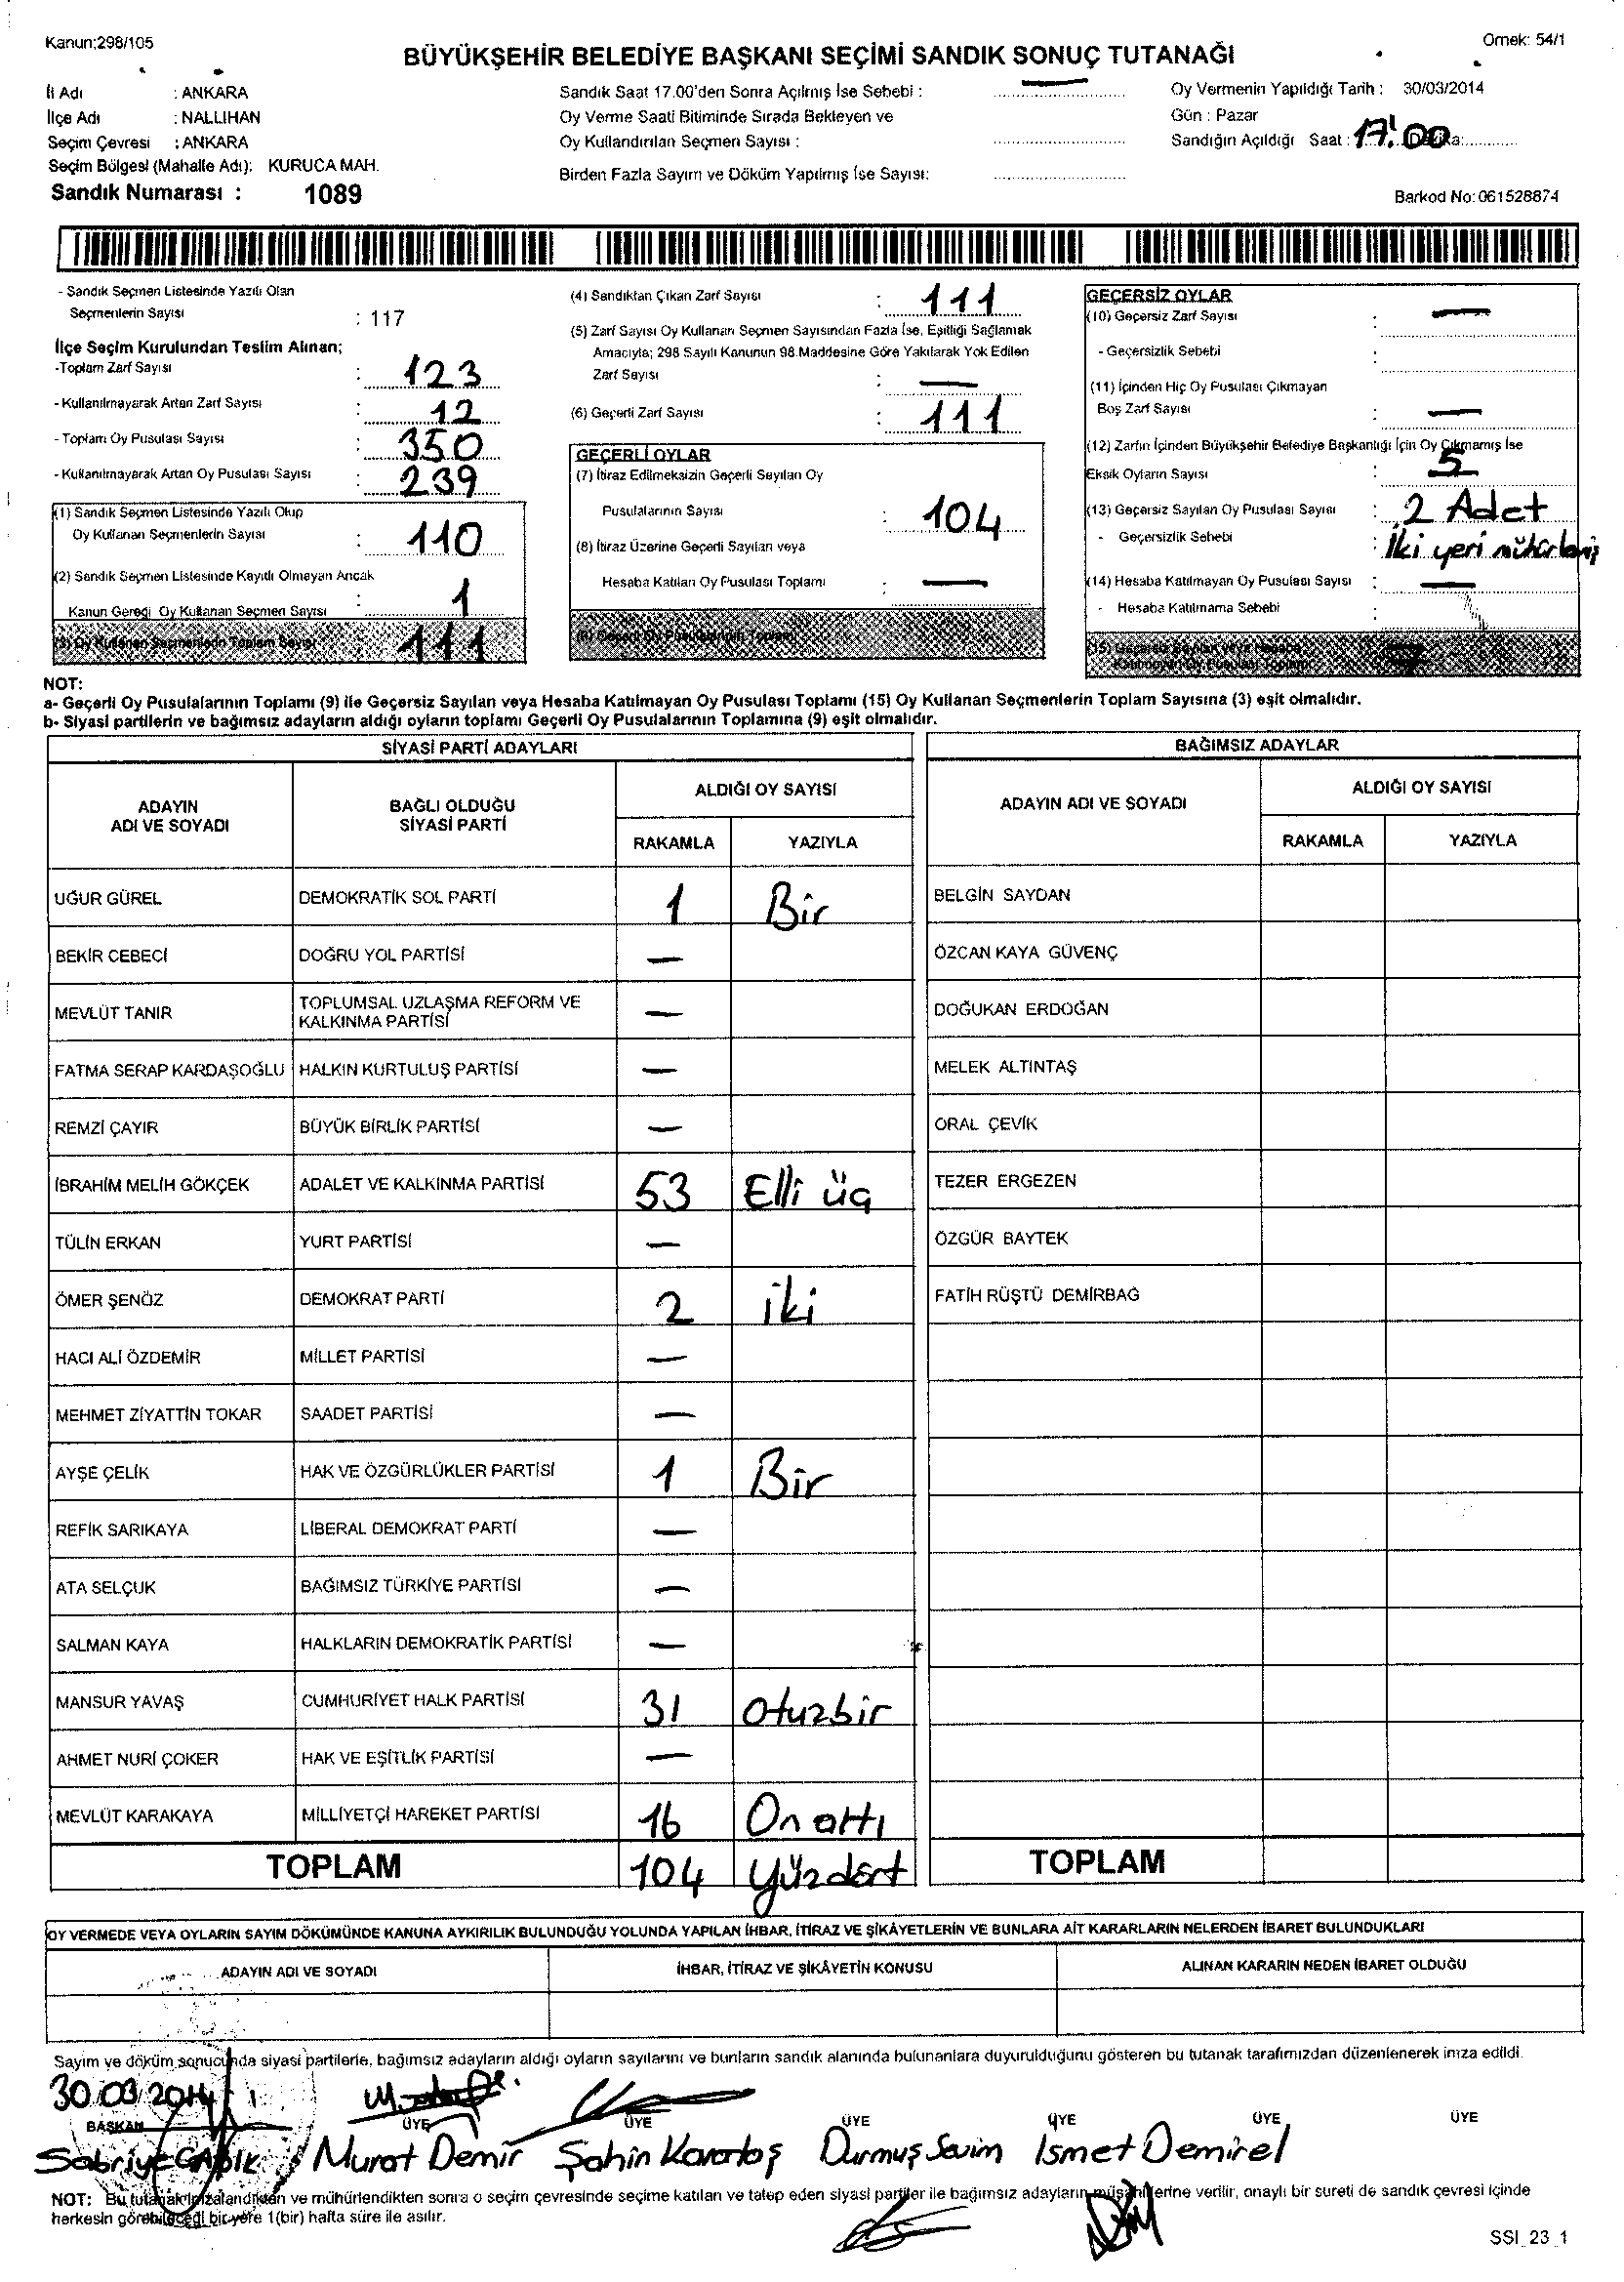 Kanun:298/105
Örnek: 54/1
BÜYÜKŞEHİR BELEDİYE BAŞKANI SEÇİMİ SANDIK SONUÇ TUTANAĞI
İl Adı : ANKARA
İlçe Adı : NALLIHAN
Seçim Çevresi : ANKARA
Seçim Bölgesi (Mahalle Adı): KURUCA MAH.
Sandık Numarası : 1089
Sandık Saat 17.00'den Sonra Açılmış İse Sebebi : —
Oy Verme Saati Bitiminde Sırada Bekleyen ve
Oy Kullandırılan Seçmen Sayısı :
Birden Fazla Sayım ve Döküm Yapılmış İse Sayısı:
Oy Vermenin Yapıldığı Tarih : 30/03/2014
Gün : Pazar
Sandığın Açıldığı Saat : 17:00
Barkod No: 061528874
- Sandık Seçmen Listesinde Yazılı Olan
Seçmenlerin Sayısı : 117
İlçe Seçim Kurulundan Teslim Alınan;
-Toplam Zarf Sayısı : 123
- Kullanılmayarak Artan Zarf Sayısı : 12
- Toplam Oy Pusulası Sayısı : 350
- Kullanılmayarak Artan Oy Pusulası Sayısı : 239
(1) Sandık Seçmen Listesinde Yazılı Olup
Oy Kullanan Seçmenlerin Sayısı : 110
(2) Sandık Seçmen Listesinde Kayıtlı Olmayan Ancak
Kanun Gereği Oy Kullanan Seçmen Sayısı : 1
(3) Oy Kullanan Seçmenlerin Toplam Sayısı 111
(4) Sandıktan Çıkan Zarf Sayısı : 111
(5) Zarf Sayısı Oy Kullanan Seçmen Sayısından Fazla İse, Eşitliği Sağlamak
Amacıyla; 298 Sayılı Kanunun 98.Maddesine Göre Yakılarak Yok Edilen
Zarf Sayısı : —
(6) Geçerli Zarf Sayısı : 111
GEÇERLİ OYLAR
(7) İtiraz Edilmeksizin Geçerli Sayılan Oy
Pusulalarının Sayısı : 104
(8) İtiraz Üzerine Geçerli Sayılan veya
Hesaba Katılan Oy Pusulası Toplamı : —
(9) Geçerli Oy Pusulalarının Toplamı
GEÇERSİZ OYLAR
(10) Geçersiz Zarf Sayısı : —
- Geçersizlik Sebebi :
(11) İçinden Hiç Oy Pusulası Çıkmayan
Boş Zarf Sayısı : —
(12) Zarfın İçinden Büyükşehir Belediye Başkanlığı İçin Oy Çıkmamış İse
Eksik Oyların Sayısı : 5
(13) Geçersiz Sayılan Oy Pusulası Sayısı : 2 Adet
- Geçersizlik Sebebi : İki yeri mühürlemiş
(14) Hesaba Katılmayan Oy Pusulası Sayısı : —
- Hesaba Katılmama Sebebi :
(15) Geçersiz Sayılan veya Hesaba
Katılmayan Oy Pusulası Toplamı
NOT:
a- Geçerli Oy Pusulalarının Toplamı (9) ile Geçersiz Sayılan veya Hesaba Katılmayan Oy Pusulası Toplamı (15) Oy Kullanan Seçmenlerin Toplam Sayısına (3) eşit olmalıdır.
b- Siyasi partilerin ve bağımsız adayların aldığı oyların toplamı Geçerli Oy Pusulalarının Toplamına (9) eşit olmalıdır.
SİYASİ PARTİ ADAYLARI
ADAYIN ADI VE SOYADI
BAĞLI OLDUĞU SİYASİ PARTİ
ALDIĞI OY SAYISI
RAKAMLA YAZIYLA
UĞUR GÜREL DEMOKRATİK SOL PARTİ 1 Bir
BEKİR CEBECİ DOĞRU YOL PARTİSİ —
MEVLÜT TANIR TOPLUMSAL UZLAŞMA REFORM VE KALKINMA PARTİSİ —
FATMA SERAP KARDAŞOĞLU HALKIN KURTULUŞ PARTİSİ —
REMZİ ÇAYIR BÜYÜK BİRLİK PARTİSİ —
İBRAHİM MELİH GÖKÇEK ADALET VE KALKINMA PARTİSİ 53 Elli üç
TÜLİN ERKAN YURT PARTİSİ —
ÖMER ŞENÖZ DEMOKRAT PARTİ 2 iki
HACI ALİ ÖZDEMİR MİLLET PARTİSİ —
MEHMET ZİYATTİN TOKAR SAADET PARTİSİ —
AYŞE ÇELİK HAK VE ÖZGÜRLÜKLER PARTİSİ 1 Bir
REFİK SARIKAYA LİBERAL DEMOKRAT PARTİ —
ATA SELÇUK BAĞIMSIZ TÜRKİYE PARTİSİ —
SALMAN KAYA HALKLARIN DEMOKRATİK PARTİSİ —
MANSUR YAVAŞ CUMHURİYET HALK PARTİSİ 31 Otuzbir
AHMET NURİ ÇOKER HAK VE EŞİTLİK PARTİSİ —
MEVLÜT KARAKAYA MİLLİYETÇİ HAREKET PARTİSİ 16 On altı
TOPLAM 104 Yüzdört
BAĞIMSIZ ADAYLAR
ADAYIN ADI VE SOYADI
ALDIĞI OY SAYISI
RAKAMLA YAZIYLA
BELGİN SAYDAN
ÖZCAN KAYA GÜVENÇ
DOĞUKAN ERDOĞAN
MELEK ALTINTAŞ
ORAL ÇEVİK
TEZER ERGEZEN
ÖZGÜR BAYTEK
FATİH RÜŞTÜ DEMİRBAĞ
TOPLAM
OY VERMEDE VEYA OYLARIN SAYIM DÖKÜMÜNDE KANUNA AYKIRILIK BULUNDUĞU YOLUNDA YAPILAN İHBAR, İTİRAZ VE ŞİKÂYETLERİN VE BUNLARA AİT KARARLARIN NELERDEN İBARET BULUNDUKLARI
ADAYIN ADI VE SOYADI
İHBAR, İTİRAZ VE ŞİKÂYETİN KONUSU
ALINAN KARARIN NEDEN İBARET OLDUĞU
Sayım ve döküm sonucunda siyasi partilerle, bağımsız adayların aldığı oyların sayılarını ve bunların sandık alanında bulunanlara duyurulduğunu gösteren bu tutanak tarafımızdan düzenlenerek imza edildi.
30.03.2014
BAŞKAN ÜYE ÜYE ÜYE ÜYE ÜYE ÜYE
Sabriye Murat Demir Şahin Karataş Durmuş Sevim Ismet Demirel
NOT: Bu tutanak imzalandıktan ve mühürlendikten sonra o seçim çevresinde seçime katılan ve talep eden siyasi partiler ile bağımsız adayların müşahitlerine verilir, onaylı bir sureti de sandık çevresi içinde
herkesin görebileceği bir yere 1(bir) hafta süre ile asılır.
SSI_23_1